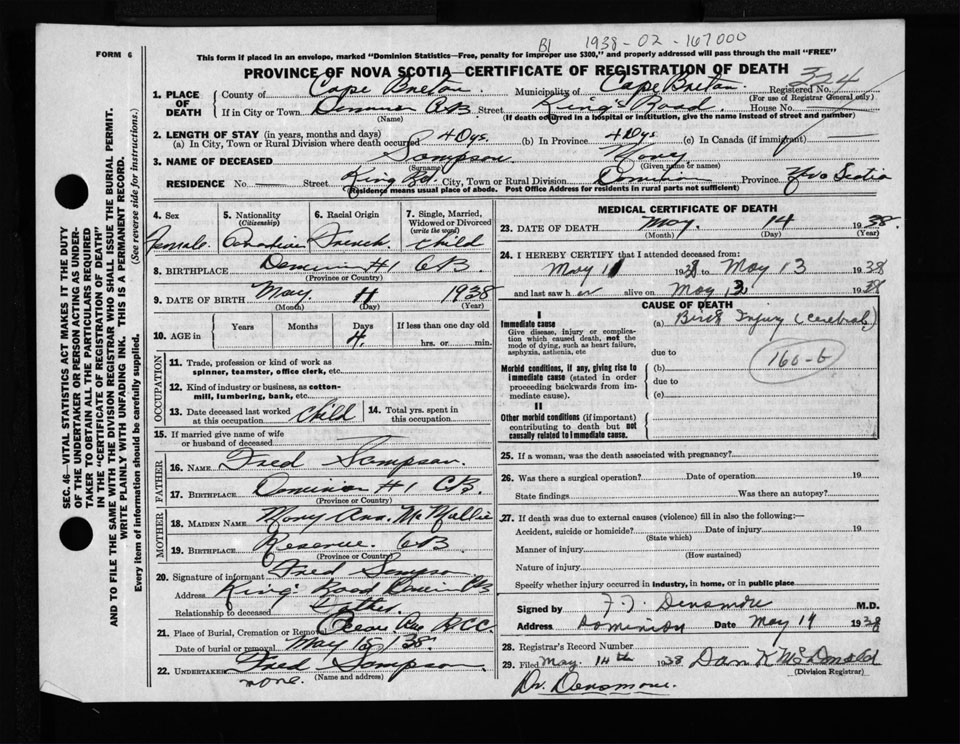 B1 1938-02-167000
FORM 6
This form if placed in an envelope, marked "Dominion Statistics—Free, penalty for improper use $300," and properly addressed will pass through the mail "FREE"
PROVINCE OF NOVA SCOTIA—CERTIFICATE OF REGISTRATION OF DEATH
324
1. PLACE OF DEATH County of Cape Breton Municipality of Cape Breton Registered No.
(For use of Registrar General only)
If in City or Town CB Street King's Road House No.
(Name) (If death occurred in a hospital or institution, give the name instead of street and number)
2. LENGTH OF STAY (in years, months and days)
(a) In City, Town or Rural Division where death occurred 4 Dys. (b) In Province 4 Dys. (c) In Canada (if immigrant)
3. NAME OF DECEASED Sampson Mary
(Surname) (Given name or names)
RESIDENCE No. — Street King Rd. City, Town or Rural Division Dominion Province Nova Scotia
(Residence means usual place of abode. Post Office Address for residents in rural parts not sufficient)
4. Sex Female
5. Nationality (Citizenship) Canadian
6. Racial Origin French
7. Single, Married, Widowed or Divorced (write the word) Child
8. BIRTHPLACE Dominion #1 CB
(Province or Country)
9. DATE OF BIRTH May 11 1938
(Month) (Day) (Year)
10. AGE in Years Months Days 4 If less than one day old hrs. or min.
OCCUPATION
11. Trade, profession or kind of work as spinner, teamster, office clerk, etc.
12. Kind of industry or business, as cotton-mill, lumbering, bank, etc.
13. Date deceased last worked at this occupation Child 14. Total yrs. spent in this occupation
15. If married give name of wife or husband of deceased
FATHER
16. NAME Fred Sampson
17. BIRTHPLACE Dominion #1 CB.
(Province or Country)
MOTHER
18. MAIDEN NAME Mary Ann
19. BIRTHPLACE Reserve CB
(Province or Country)
20. Signature of informant Fred Sampson
Address King's Road CB
Relationship to deceased Father
21. Place of Burial, Cremation or Removal
Date of burial or removal May 15/38
22. UNDERTAKER Fred Sampson
(Name and address)
none.
MEDICAL CERTIFICATE OF DEATH
23. DATE OF DEATH May 14 1938
(Month) (Day) (Year)
24. I HEREBY CERTIFY that I attended deceased from:
May 11 1938 to May 13 1938
and last saw h er alive on May 13 1938
CAUSE OF DEATH
I
Immediate cause
Give disease, injury or complication which caused death, not the mode of dying, such as heart failure, asphyxia, asthenia, etc
(a) Birth Injury (cerebral)
due to
Morbid conditions, if any, giving rise to immediate cause (stated in order proceeding backwards from immediate cause).
(b) 160-b
due to
(c)
II
Other morbid conditions (if important) contributing to death but not causally related to immediate cause.
25. If a woman, was the death associated with pregnancy?
26. Was there a surgical operation? Date of operation 19
State findings Was there an autopsy?
27. If death was due to external causes (violence) fill in also the following:—
Accident, suicide or homicide? Date of injury 19
(State which)
Manner of injury
(How sustained)
Nature of injury
Specify whether injury occurred in industry, in home, or in public place
Signed by F. J. Densmore M.D.
Address Dominion Date May 14 1938
28. Registrar's Record Number
29. Filed May 14th 1938 Dan K McDonald
(Division Registrar)
Dr. Densmore.
SEC. 46—VITAL STATISTICS ACT MAKES IT THE DUTY
OF THE UNDERTAKER OR PERSON ACTING AS UNDER-
TAKER TO OBTAIN ALL THE PARTICULARS REQUIRED
IN THE "CERTIFICATE OF REGISTRATION OF DEATH"
AND TO FILE THE SAME WITH THE DIVISION REGISTRAR WHO SHALL ISSUE THE BURIAL PERMIT.
WRITE PLAINLY WITH UNFADING INK. THIS IS A PERMANENT RECORD.
Every item of information should be carefully supplied. (See reverse side for instructions.)